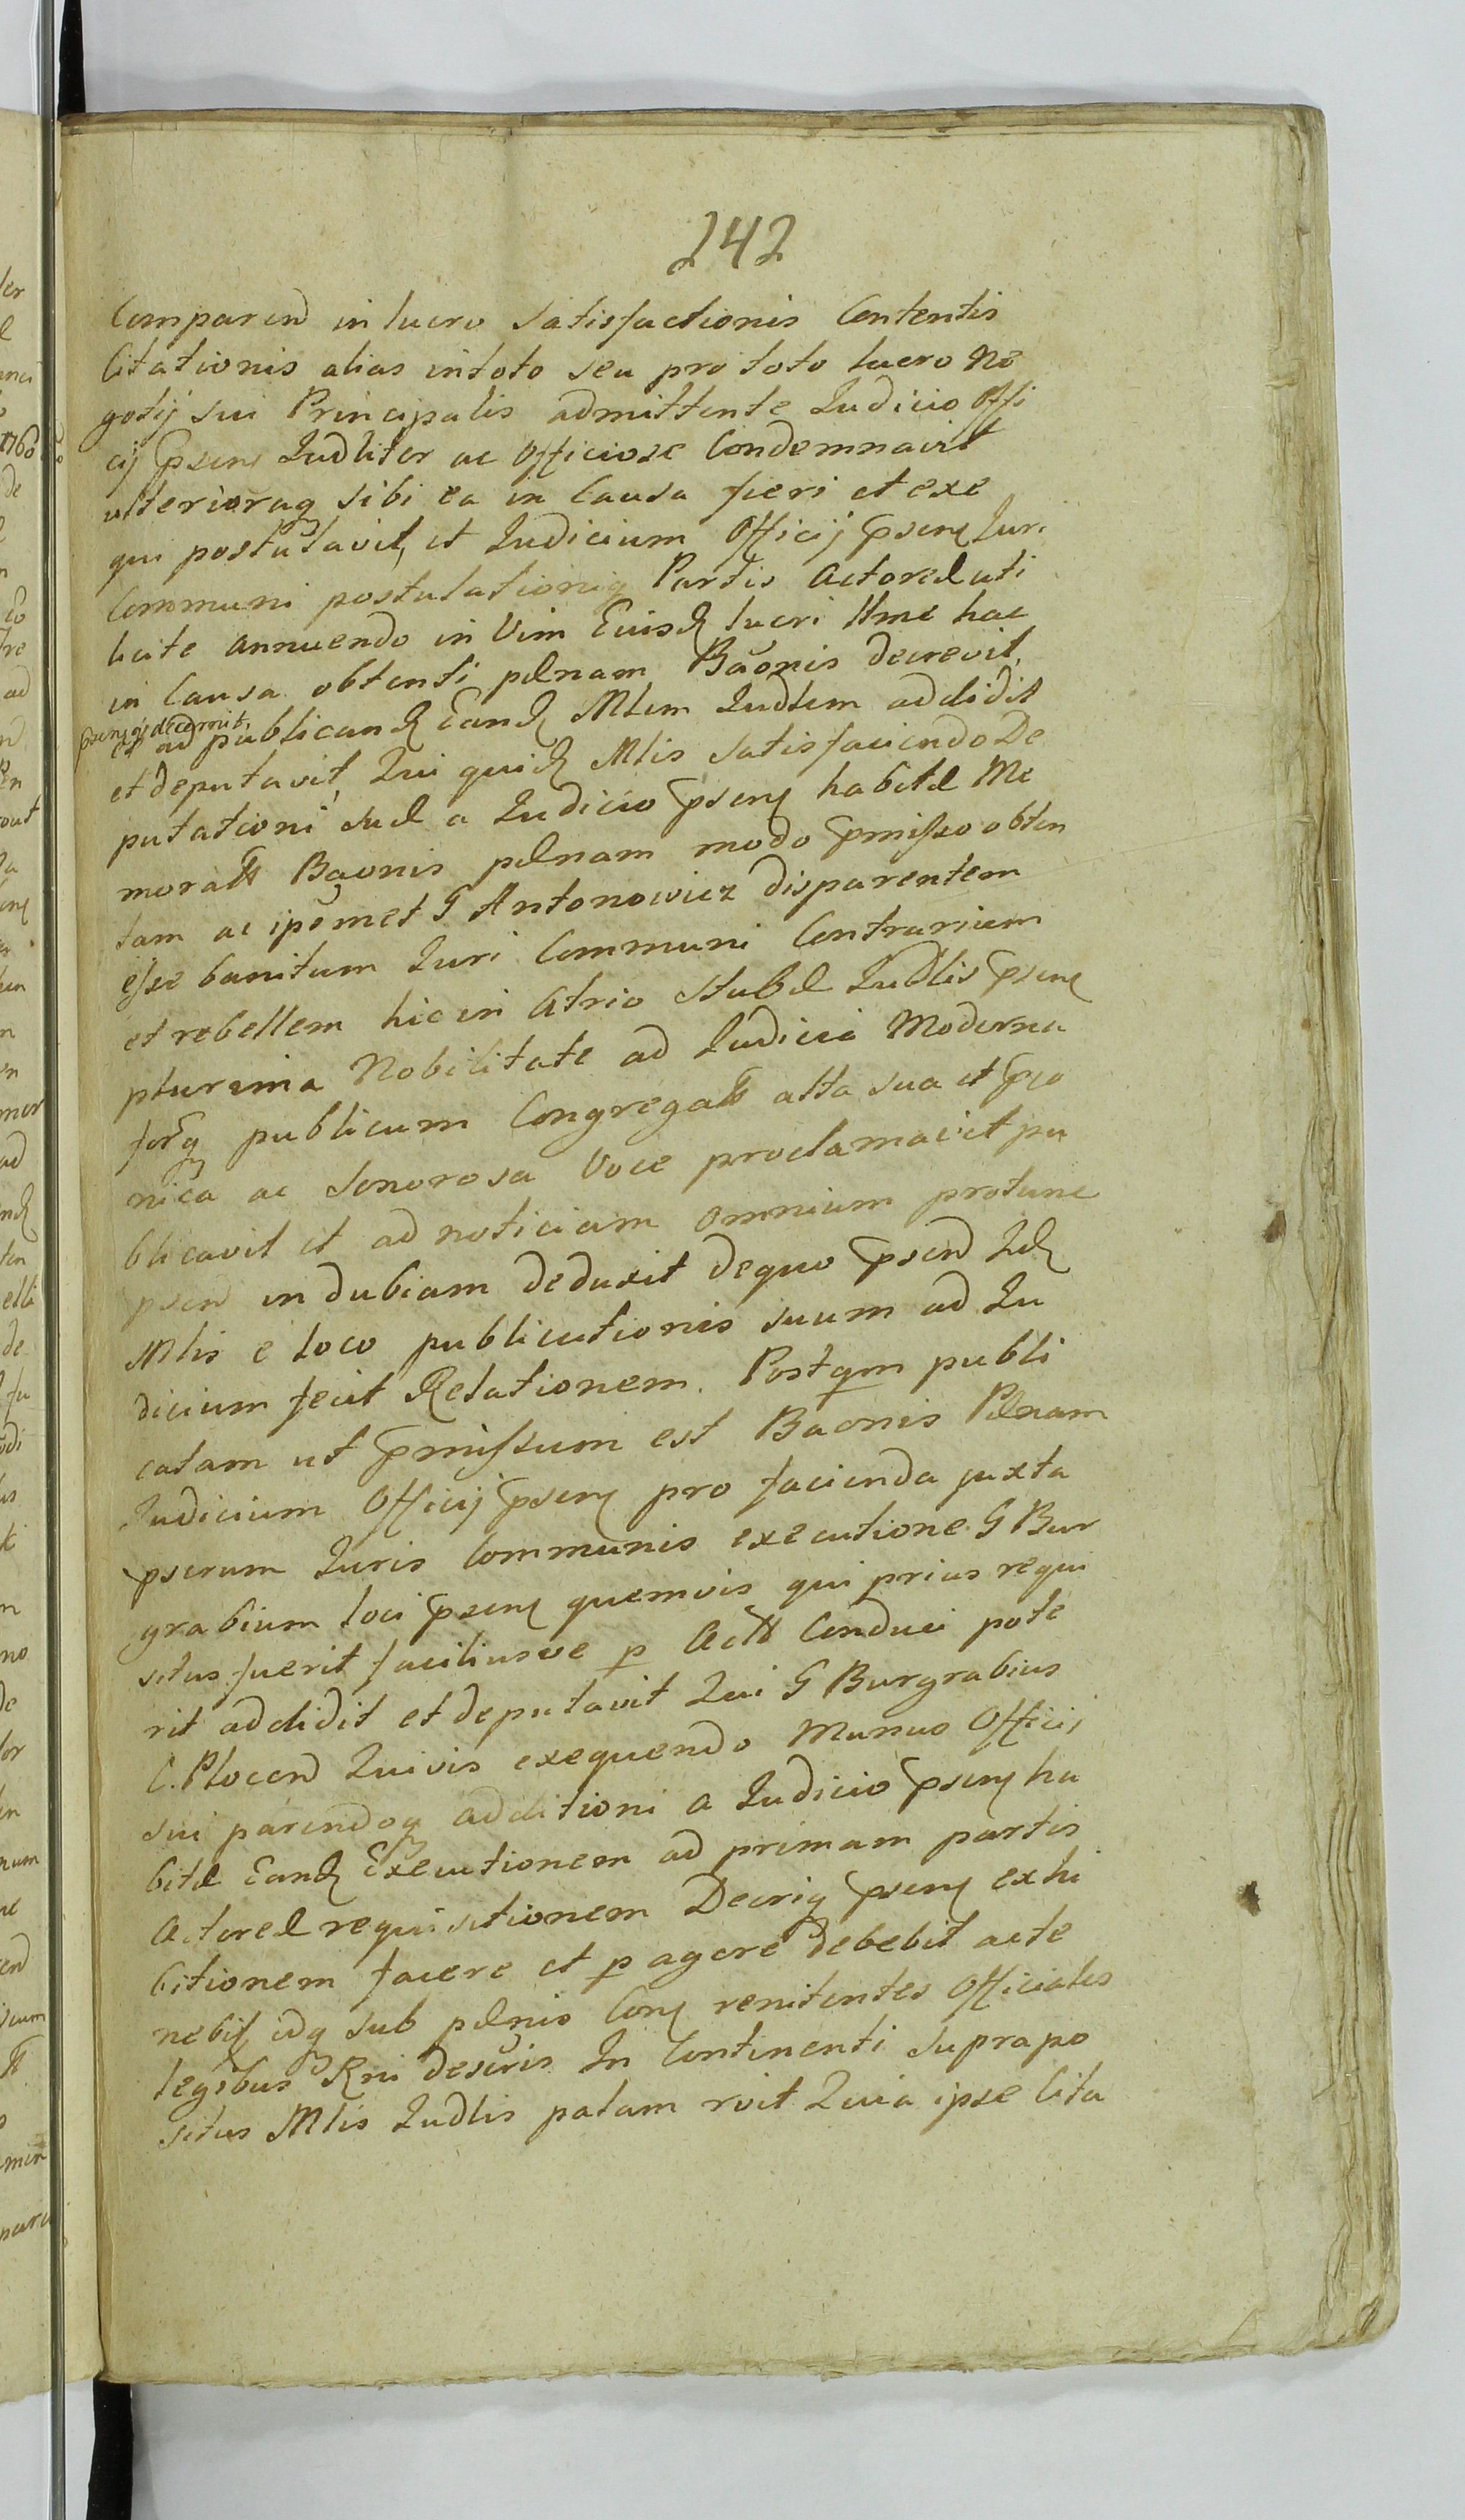 242
Comparen in lucro Satisfactionis Contentis
Citationis alias in toto seu pro toto lucro Ne
gotij sui Principalis admittente Judicio Offi
cij psens Judliter ac Officiose Condemnavit
ulterioraq sibi ea in Causa fieri et exe
qui postulavit, et Judicium Officij psens Juri
Communi postulationiq Partis Actoreæ uti
licite annuendo in Vim Eiusd lucri ttme hac
in Causa obtenti pænam Baonis decrevit,
psens decernit
et ad publicand Eand Mlem Judlem addidit
et deputavit, Qui quid Mlis Satisfaciendo De
putationi suæ a Judicio psens habitæ Me
moratt Baonis pænam modo pmisso obten
tam ac ipsmet G Antonowicz disparentem
esse banitum Juri Communi Contrarium
et rebellem hic in Atrio Stubæ Judlis psens
plurima Nobilitate ad Judicia Moderna
forq publicum Congregatt alta sua et pco
nica ac Sonorosa Voce proclamavit pu
blicavit et ad noticiam omnium protunc
psen in dubiam deduxit dequo psen Id
Mlis e loco publicationis suum ad Ju
dicium fecit Relationem. Postqm publi
catam ut pmissum est Baonis Pænam
Judicium Officij psens pro facienda juxta
pscrum Juris Communis executione G Bur
grabium loci psens quemvis qui prius requi
situs fuerit faciliusve p Actt Conduci pote
rit addidit et deputavit Qui G Burgrabius
C. Plocen Quivis exequendo Munus Officij
sui parendoq additioni a Judicio psens ha
bitæ Eand Executionem ad primam partis
Actoreæ requisitionem Decriq psens exhi
bitionem facere et p agere debebit acte
nebit, idq sub pænis Cons renitentes Officiales
legibus Rni descris In Continenti suprapo
situs Mlis Judlis palam rvit Quia ipse Cita